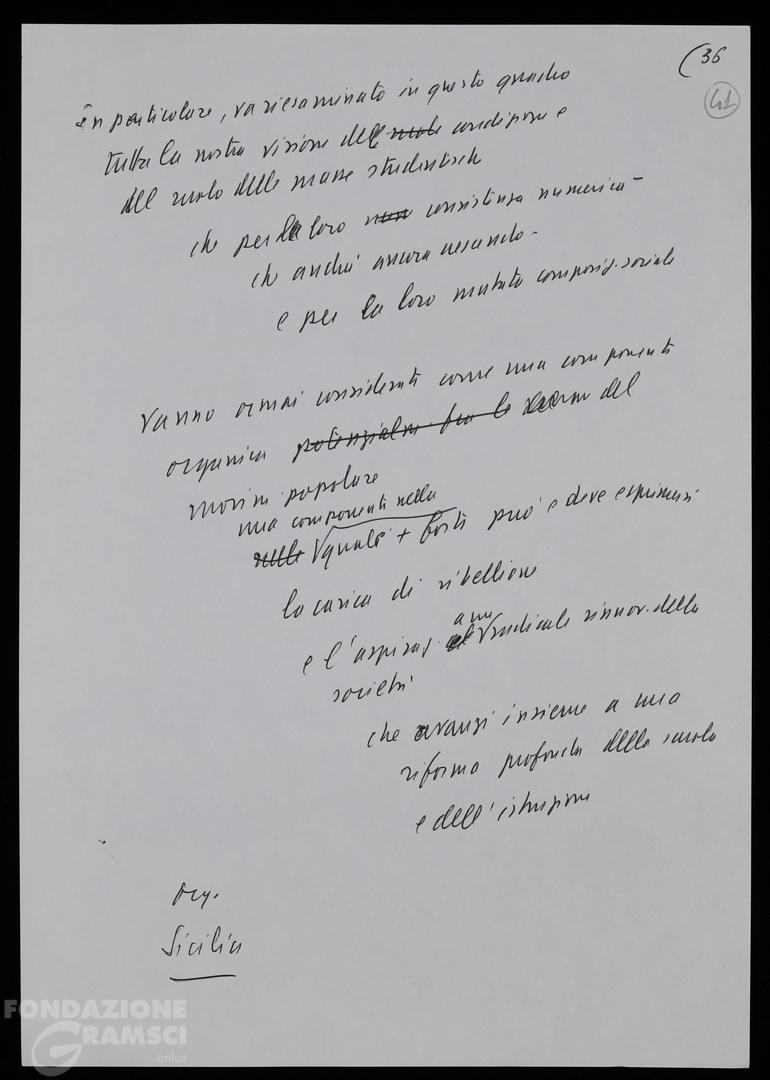 (36
41
In particolare, va riesaminato in questo quadro
tutta la nostra visione della ruolo condizione e
del ruolo delle masse studentesche
che per la loro consistenza numerica -
che andrà ancora crescendo -
e per la loro mutata composiz. sociale
vanno ormai considerati come una componente
organica potenzialm. del
movim. popolare
una componente nella
nelle quale + forte può e deve esprimersi
la carica di ribellione
e l'aspiraz. a una radicale rinnov. della
società
che avanzi insieme a una
riforma profonda della scuola
e dell'istruzione
Org.
Sicilia
FONDAZIONE
GRAMSCI
onlus